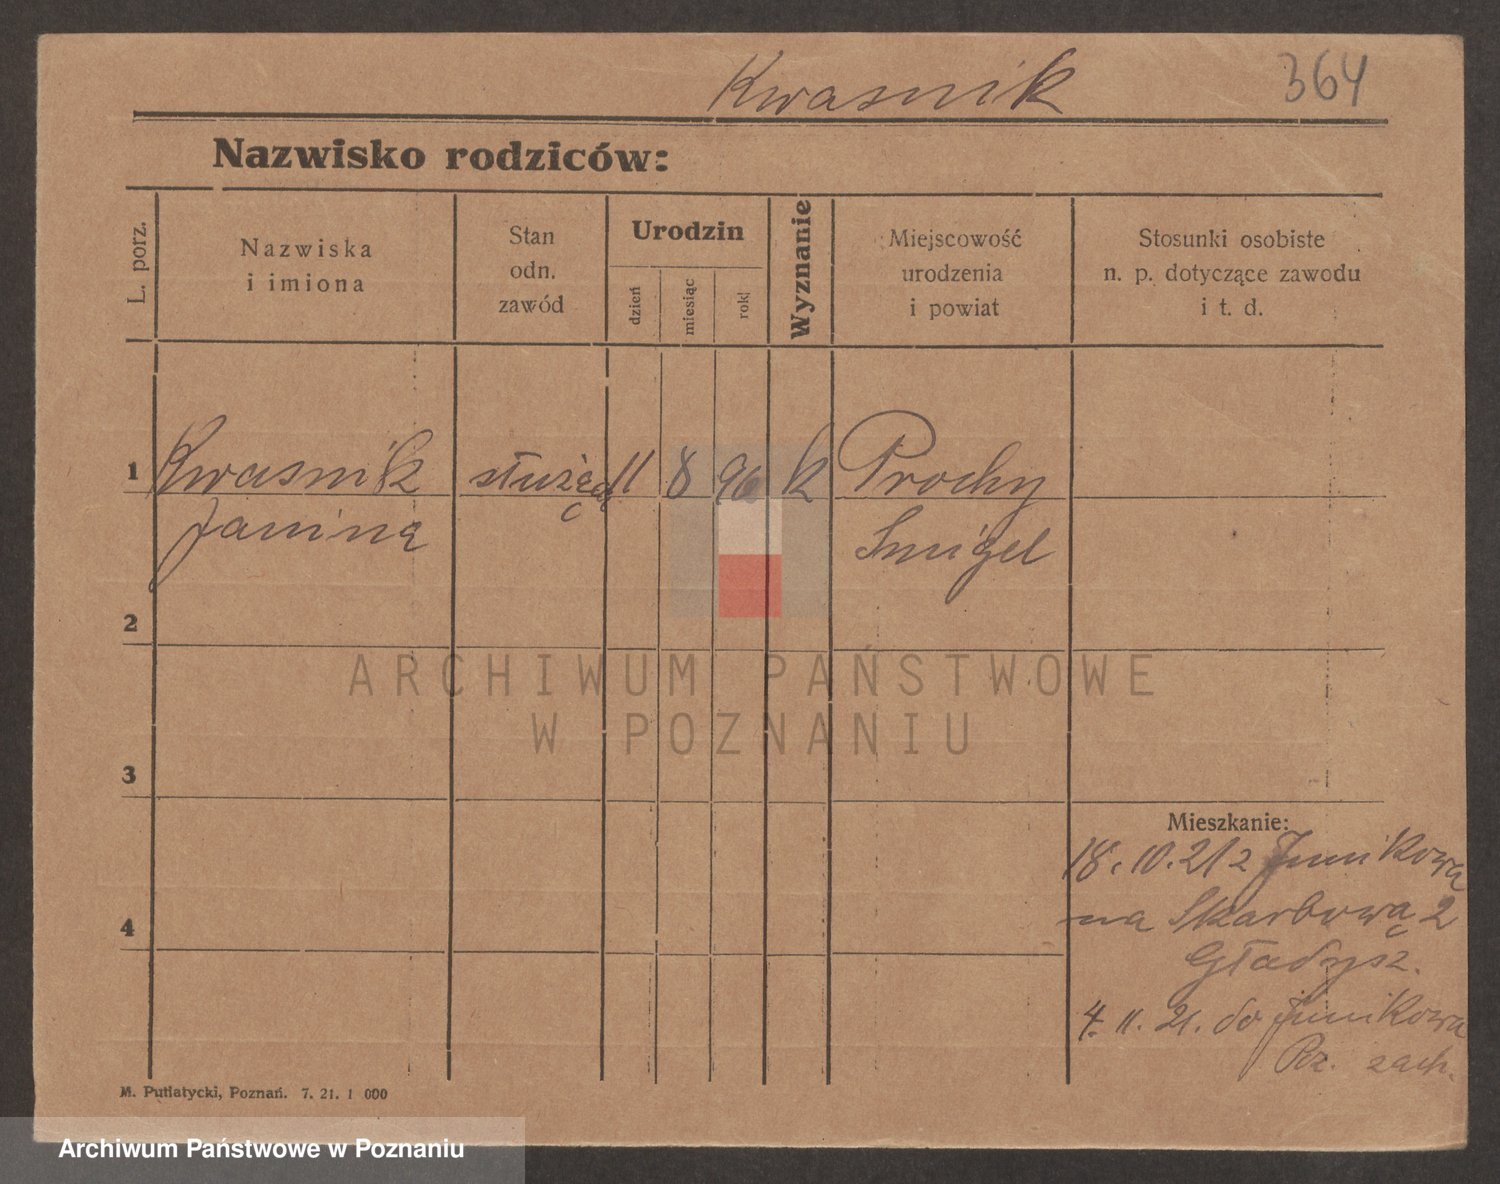 Kwasnik 364
Nazwisko rodziców:
L. porz.
Nazwiska
i imiona
Stan
odn.
zawód
Urodzin
dzień
miesiąc
rok
Wyznanie
Miejscowość
urodzenia
i powiat
Stosunki osobiste
n. p. dotyczące zawodu
i t. d.
1 Kwasnik służąca 11 8 96 k Prochy
Janina Smigel
2
3
4
Mieszkanie:
18.10.21 z Junikowa
na Skarbową 2
Gładysz.
4. 11. 21. do Junikowa
Pz. zach.
M. Putiatycki, Poznań. 7. 21. 1 000
ARCHIWUM PAŃSTWOWE
W POZNANIU
Archiwum Państwowe w Poznaniu